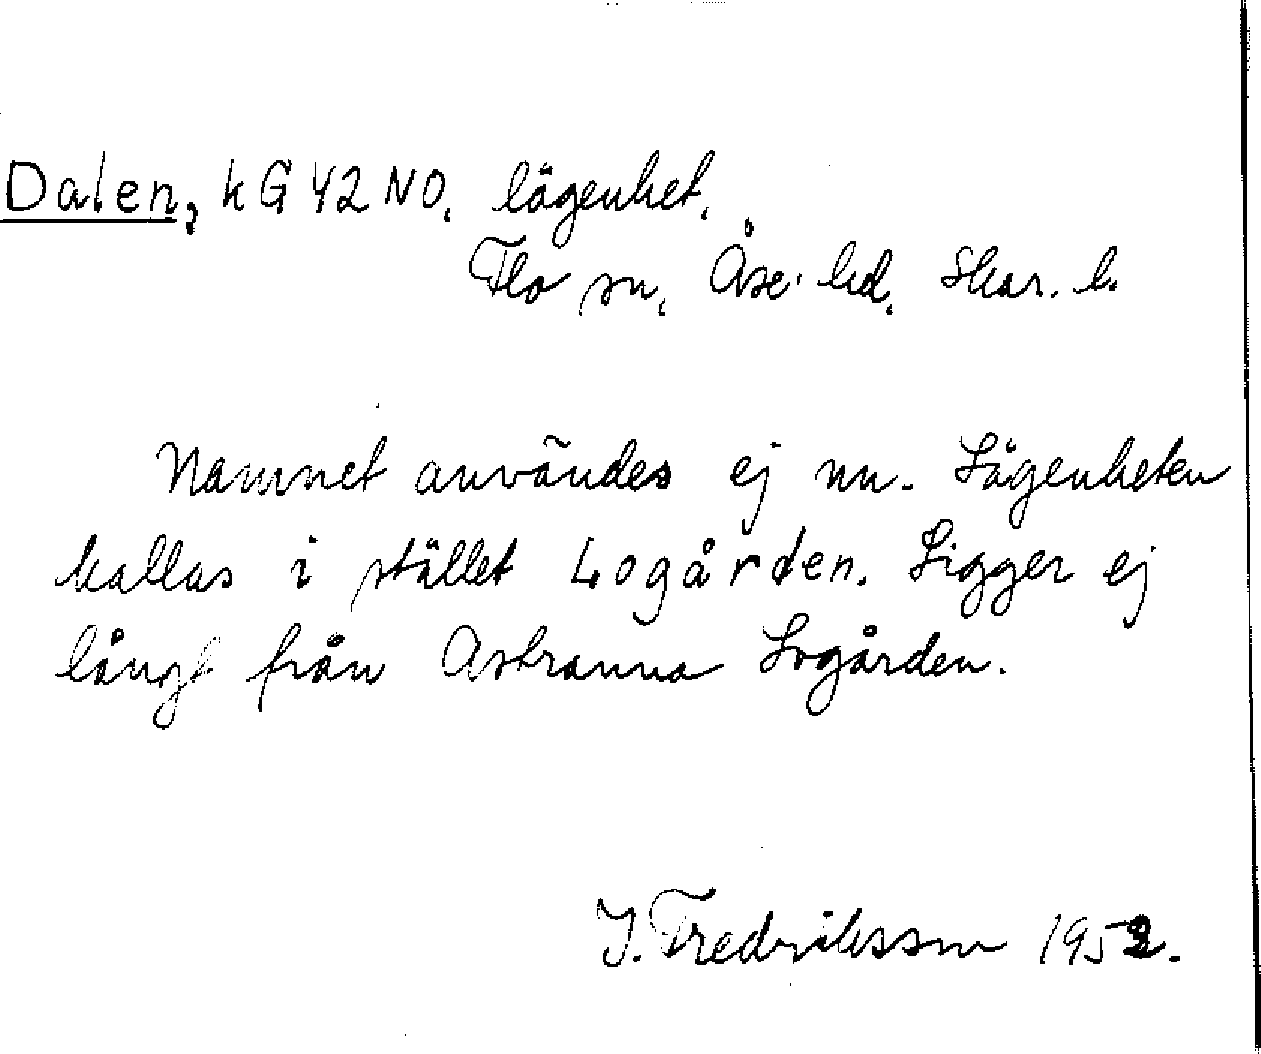 Dalen, kG 42 NO. lägenhet.
Flo sn. Åse hd. Skar. l.
Namnet användes ej nu. Lägenheten
kallas i stället Logården. Ligger ej
långt från Astranna Logården.
I. Fredriksson 1952.